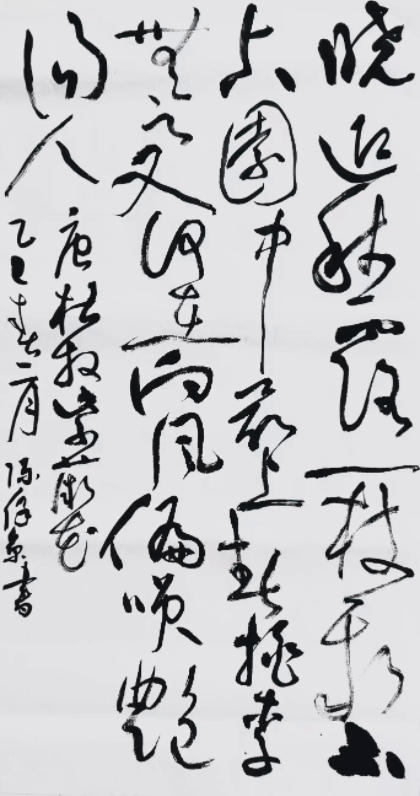 晓迎秋露一枝新不
占園中最上春桃李
無言又何在向风偏咲艷
阳人
唐杜牧紫薇花
乙巳春二月 书